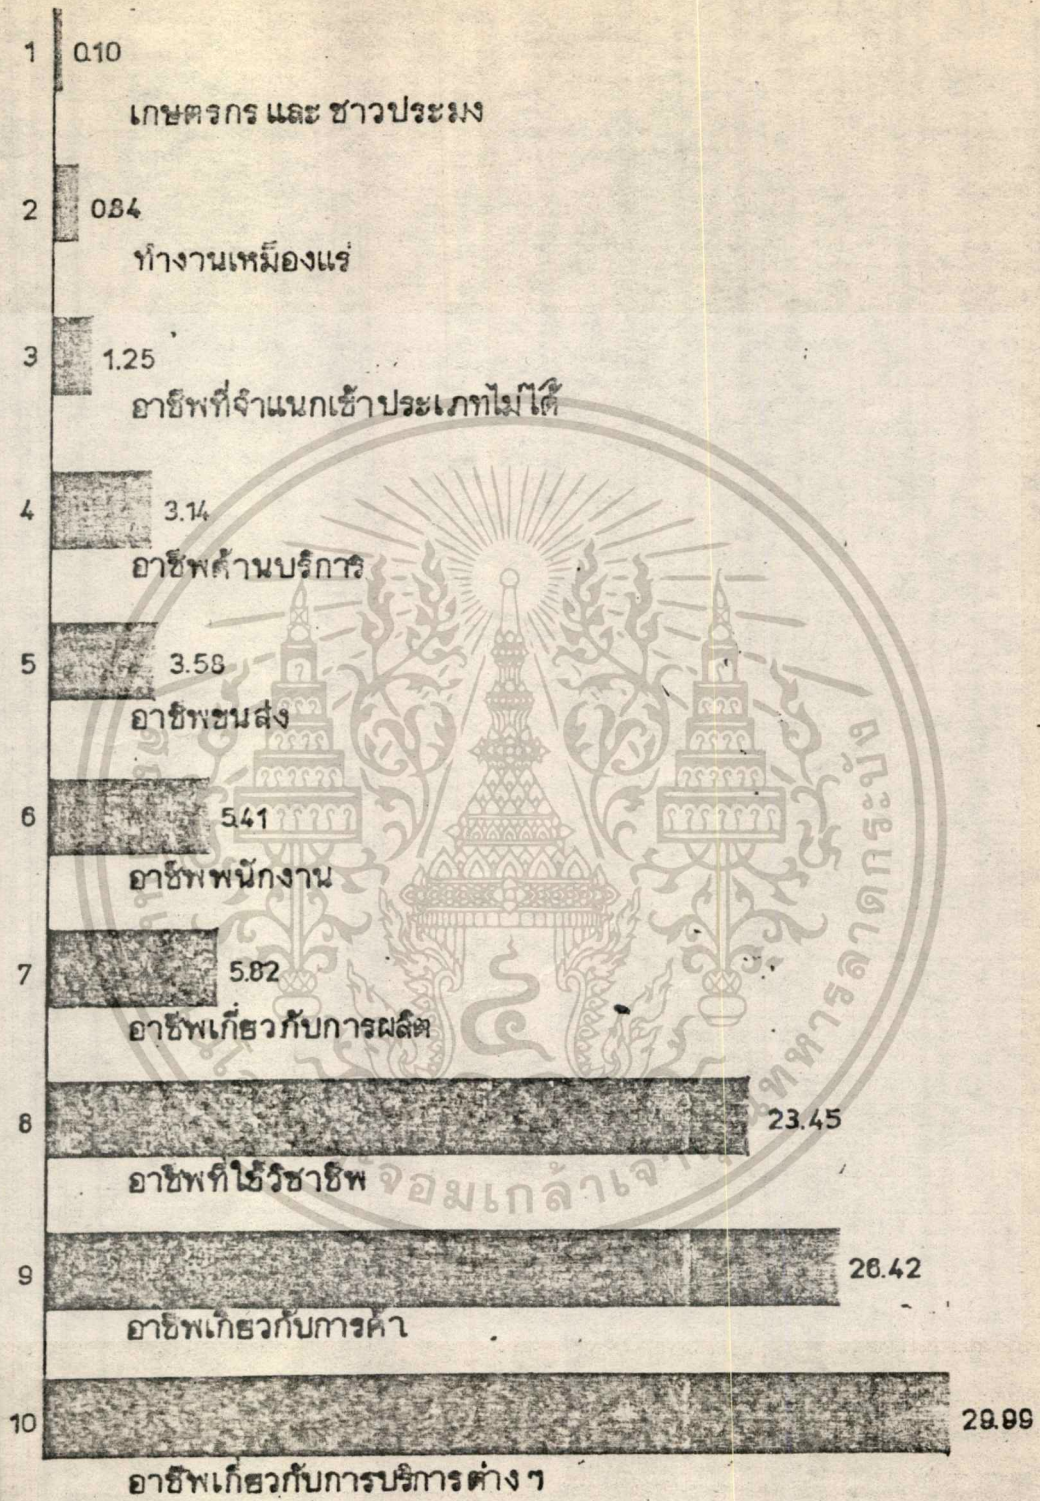 1 0.10
เกษตรกร และ ชาวประมง
2 0.84
ทำงานเหมืองแร่
3 1.25
อาชีพที่จำแนกเข้าประเภทไม่ได้
4 3.14
อาชีพด้านบริการ
5 3.58
อาชีพขนส่ง
6 5.41
อาชีพพนักงาน
7 5.82
อาชีพเกี่ยวกับการผลิต
8 23.45
อาชีพที่ใช้วิชาชีพ
9 26.42
อาชีพเกี่ยวกับการค้า
10 29.99
อาชีพเกี่ยวกับการบริการต่าง ๆ
จอมเกล้าเจ้า ทหารลาดกระบัง